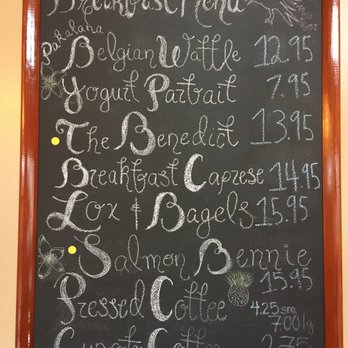 Breakfast Menu
Pakalana
Belgian Waffle 12.95
Yogurt Parfait 7.95
The Benedict 13.95
Breakfast Caprese 14.95
Lox & Bagels 15.95
Salmon Bennie
15.95
Pressed Coffee 4.25 sm
7.00 lg
Coffee 2.75